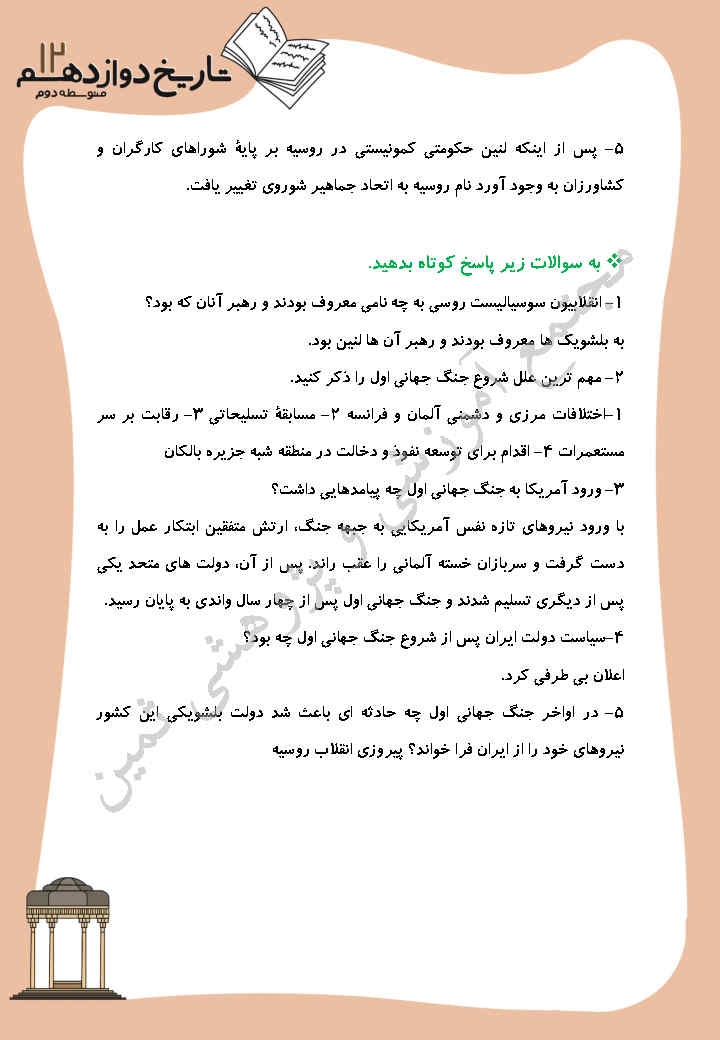 تاریخ دوازدهم ۱۲
متوسطه دوم
۵- پس از اینکه لنین حکومتی کمونیستی در روسیه بر پایهٔ شوراهای کارگران و
کشاورزان به وجود آورد نام روسیه به اتحاد جماهیر شوروی تغییر یافت.
❖ به سوالات زیر پاسخ کوتاه بدهید.
۱- انقلابیون سوسیالیست روسی به چه نامی معروف بودند و رهبر آنان که بود؟
به بلشویک ها معروف بودند و رهبر آن ها لنین بود.
۲- مهم ترین علل شروع جنگ جهانی اول را ذکر کنید.
۱-اختلافات مرزی و دشمنی آلمان و فرانسه ۲- مسابقهٔ تسلیحاتی ۳- رقابت بر سر
مستعمرات ۴- اقدام برای توسعه نفوذ و دخالت در منطقه شبه جزیره بالکان
۳- ورود آمریکا به جنگ جهانی اول چه پیامدهایی داشت؟
با ورود نیروهای تازه نفس آمریکایی به جبهه جنگ، ارتش متفقین ابتکار عمل را به
دست گرفت و سربازان خسته آلمانی را عقب راند. پس از آن، دولت های متحد یکی
پس از دیگری تسلیم شدند و جنگ جهانی اول پس از چهار سال واندی به پایان رسید.
۴-سیاست دولت ایران پس از شروع جنگ جهانی اول چه بود؟
اعلان بی طرفی کرد.
۵- در اواخر جنگ جهانی اول چه حادثه ای باعث شد دولت بلشویکی این کشور
نیروهای خود را از ایران فرا خواند؟ پیروزی انقلاب روسیه
مجتمع آموزشی و پژوهشی ثمین